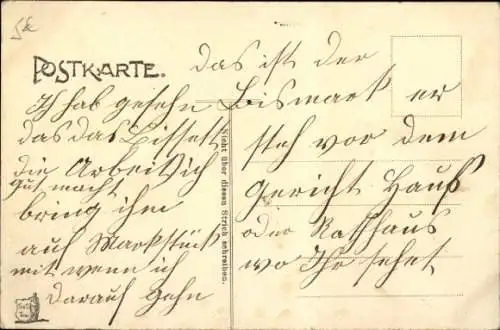 5€
POSTKARTE.
Ich hab gesehn
das das Bisset
die Arbeit sich
gut macht
bring ihm
auf Markstück
mit wenn ich
darauf Gehn
Nicht über diesen Strich schreiben.
das ist der
Bismark er
steh vor dem
Gericht Hauß
oder Rathhaus
wo Ihr sehet